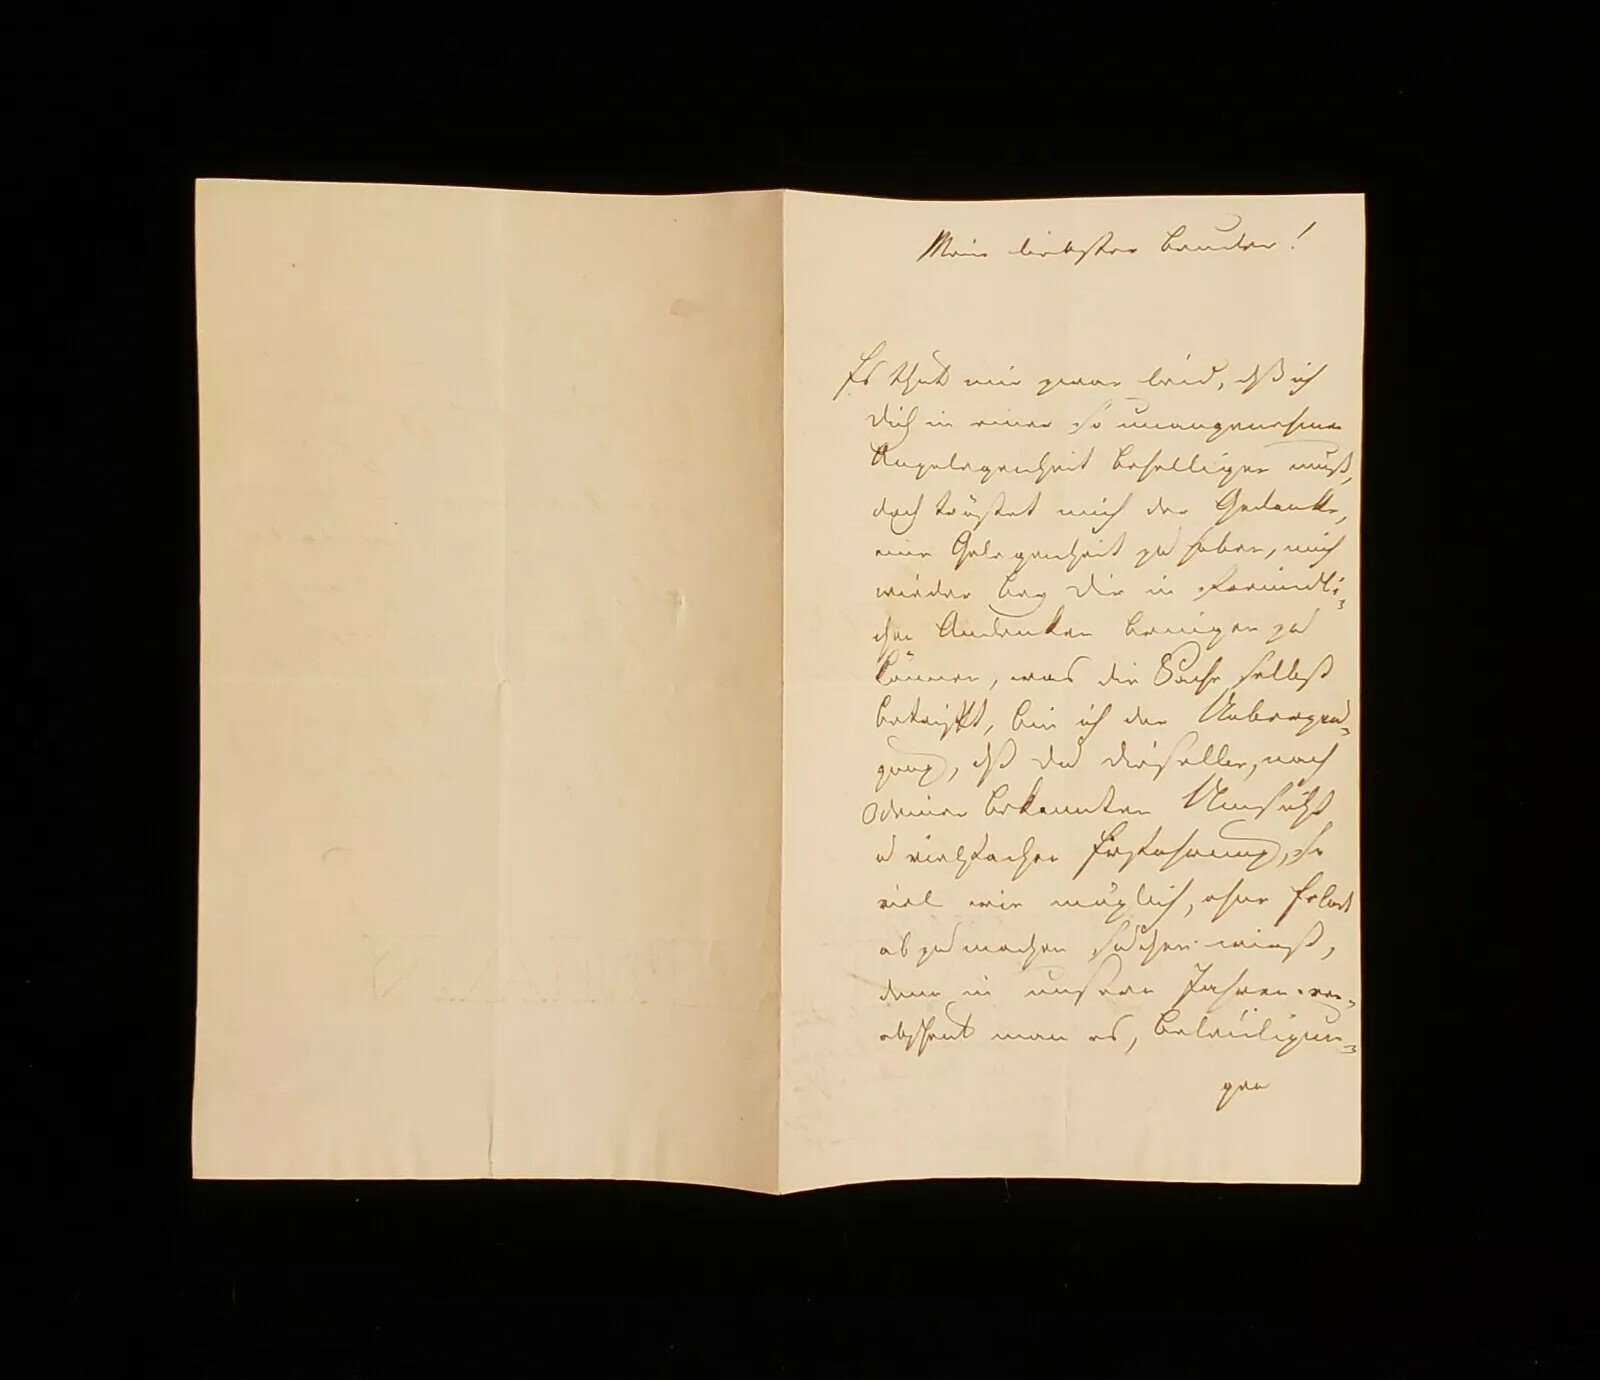 Mein liebster Bruder!
Es thut mir zwar leid, dß ich
Dich in einer so unangenehmen
Angelegenheit behelligen muß,
doch tröstet mich der Gedanke,
eine Gelegenheit zu haben, mich
wieder bey Dir in freundli-
chen Andenken bringen zu
können, was die Sache selbst
betrifft, bin ich der Ueberzeu-
gung, dß Du dieselbe, nach
Deiner bekannten Umsicht
u vielfachen Erfahrung, so
viel wie möglich, ohne Eclat
abzumachen suchen wirst,
denn in unsern Jahren ver-
abscheut man es, Beleidigun-
gen